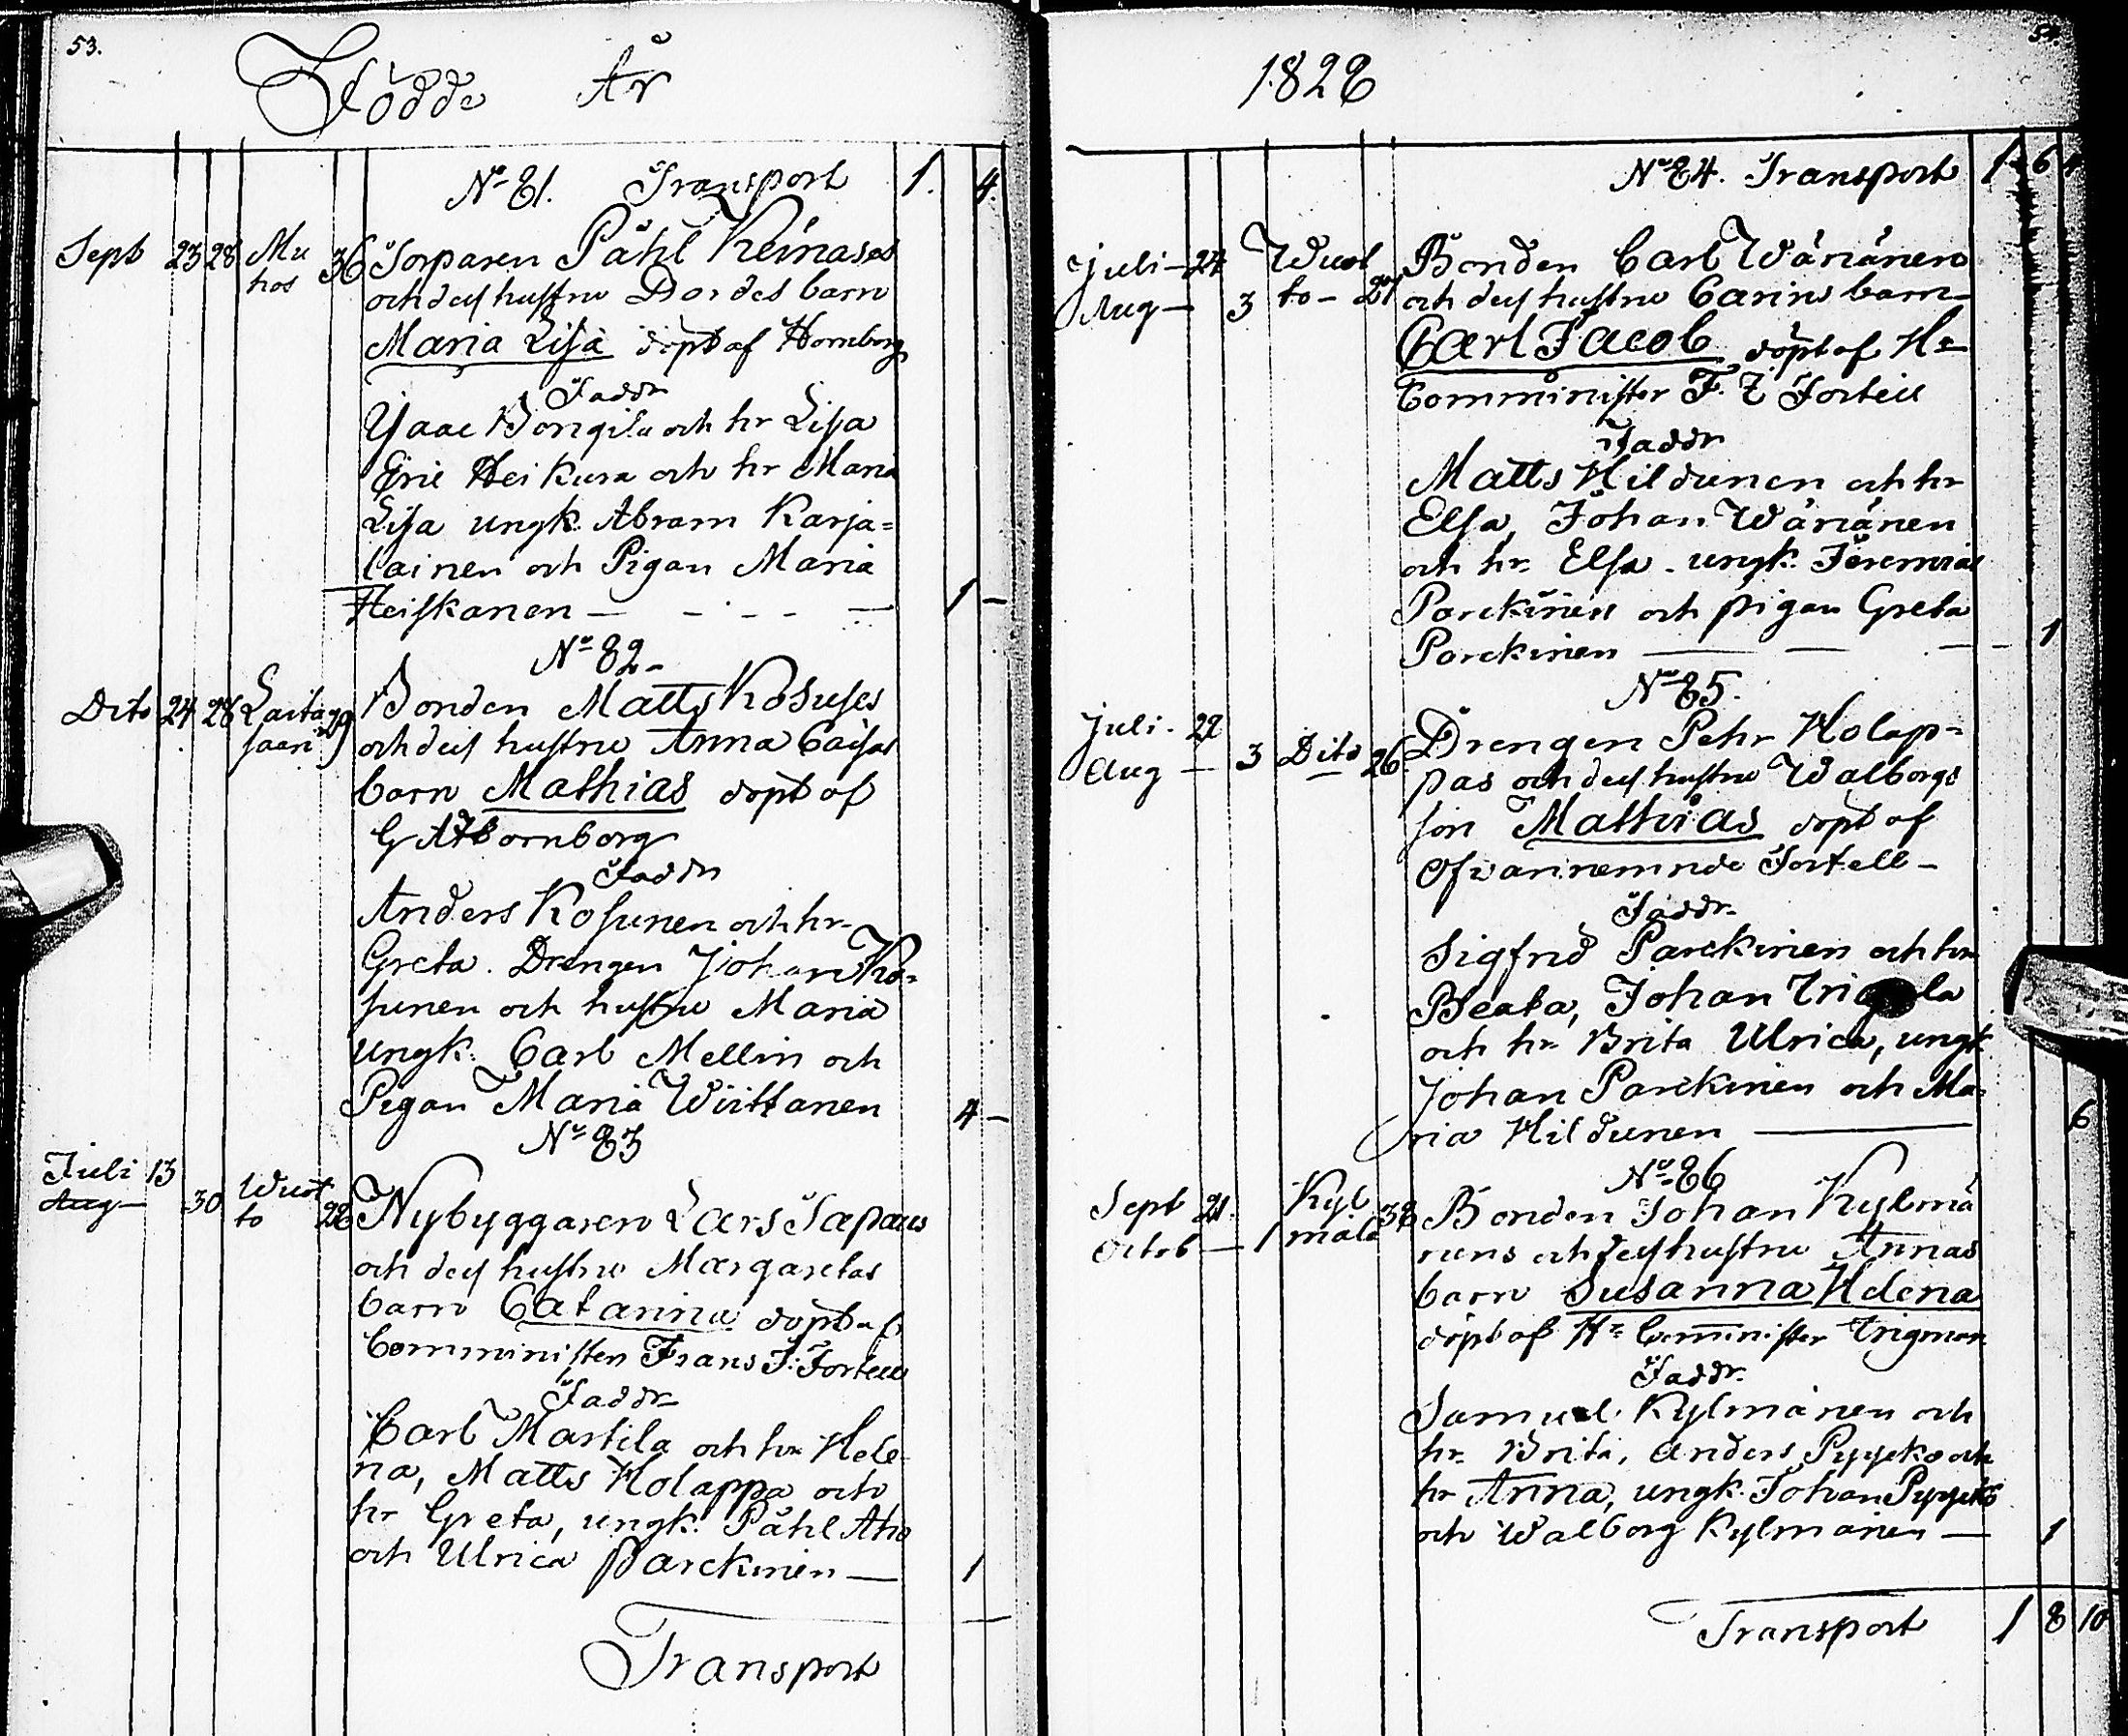 53.
Födde År
No 81. Transport 1. 4.
Sept 23 28 Mu 36 Torparen Påhl Keinäses
hos och dess hustru Dordes barn
Maria Lisa döpt af Hornborg
Faddr
Isaac Bongila och hr Lisa
Eric Heikura och hr Maria
Lisa ungk. Abram Karja=
lainen och Pigan Maria
Heiskanen — 1 —
No 82 —
Dito 24 28 Laita 29 Bonden Matts Kosuses
saari och dess hustru Anna Caisas
barn Mathias döpt af
G A Hornborg
Faddr
Anders Kosunen och hr
Greta. Drengen Johan Ko=
sunen och hustru Maria
ungk. Carl Mellin och
Pigan Maria Wirttanen 4 —
No 83
Juli 13
Aug — 30 Wuol 28 Nybyggaren Lars Tapanis
to och dess hustru Margaretas
barn Catarina döpt af
Comministern Frans J: Fortell
Faddr
Carl Martila och hr Hele=
na, Matts Holappa och
hr Greta, ungk. Påhl Aho
och Ulrica Parckinen — 1
Transport
54.
1828
No 84. Transport 1 6 4
Juli — 24 Wuol Bonden Carl Wänänens
Aug — 3 to — 27 och dess hustru Carins barn
Carl Jacob döpt af Hr
Comminister F. J Fortell
Faddr
Matts Hildunen och hr
Elsa, Johan Wänänen
och hr Elsa. ungk. Jeremias
Parckinen och pigan Greta
Parckinen — 1
No 85.
Juli. 22 Drengen Pehr Holap=
Aug — 3 Dito 26 pas och dess hustru Walborgs
son Mathias döpt af
Ofvannemnde Fortell —
Faddr.
Sigfrid Parckinen och hr
Beata, Johan
och hr Brita Ulrica, ungk
Johan Parckinen och Ma=
ria Hildunen — 6
No 86
Sept 21. Kyl 38 Bonden Johan Kylmä
Octob — 1 mälä nens och dess hustru Annas
barn Susanna Helena
döpt af Hr Comminister Krigman
Faddr.
Samuel Kylmänen och
hr Brita, Anders Pyyckö och
hr Anna, ungk. Johan Pyyckö
och Walborg Kylmänen — 1
Transport 1 8 10